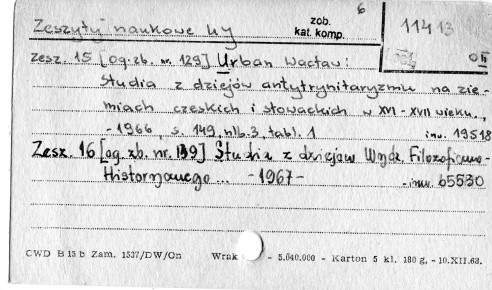 6
Zeszyty naukowe UJ
zob.
kat. komp.
11413
Zesz. 15 [og. zb. nr. 129] Urban Wacław:
Studia z dziejów antytrynitaryzmu na zie-
miach czeskich i słowackich w XVI - XVII wieku.,
- 1966, s. 149, nlb. 3, tabl. 1 inw. 19518
Zesz. 16 [og. zb. nr. 139] Studia z dziejów Wydz. Filozoficzno-
Historycznego... - 1967 - - inw. 65530
CWD B 13 b Zam. 1537/DW/On Wrak - 5.040.000 - Karton 5 kl. 180 g. - 10.XII.68.